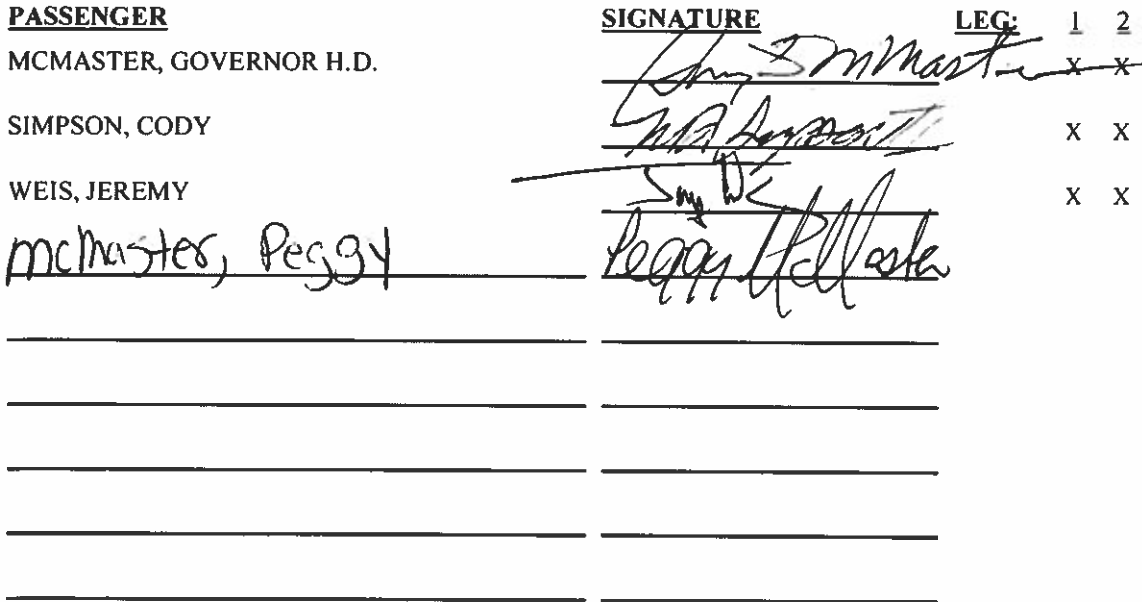 PASSENGER SIGNATURE LEG: 1 2
MCMASTER, GOVERNOR H.D. McMaster X X
SIMPSON, CODY X X
WEIS, JEREMY X X
McMaster, Peggy Peggy McMaster